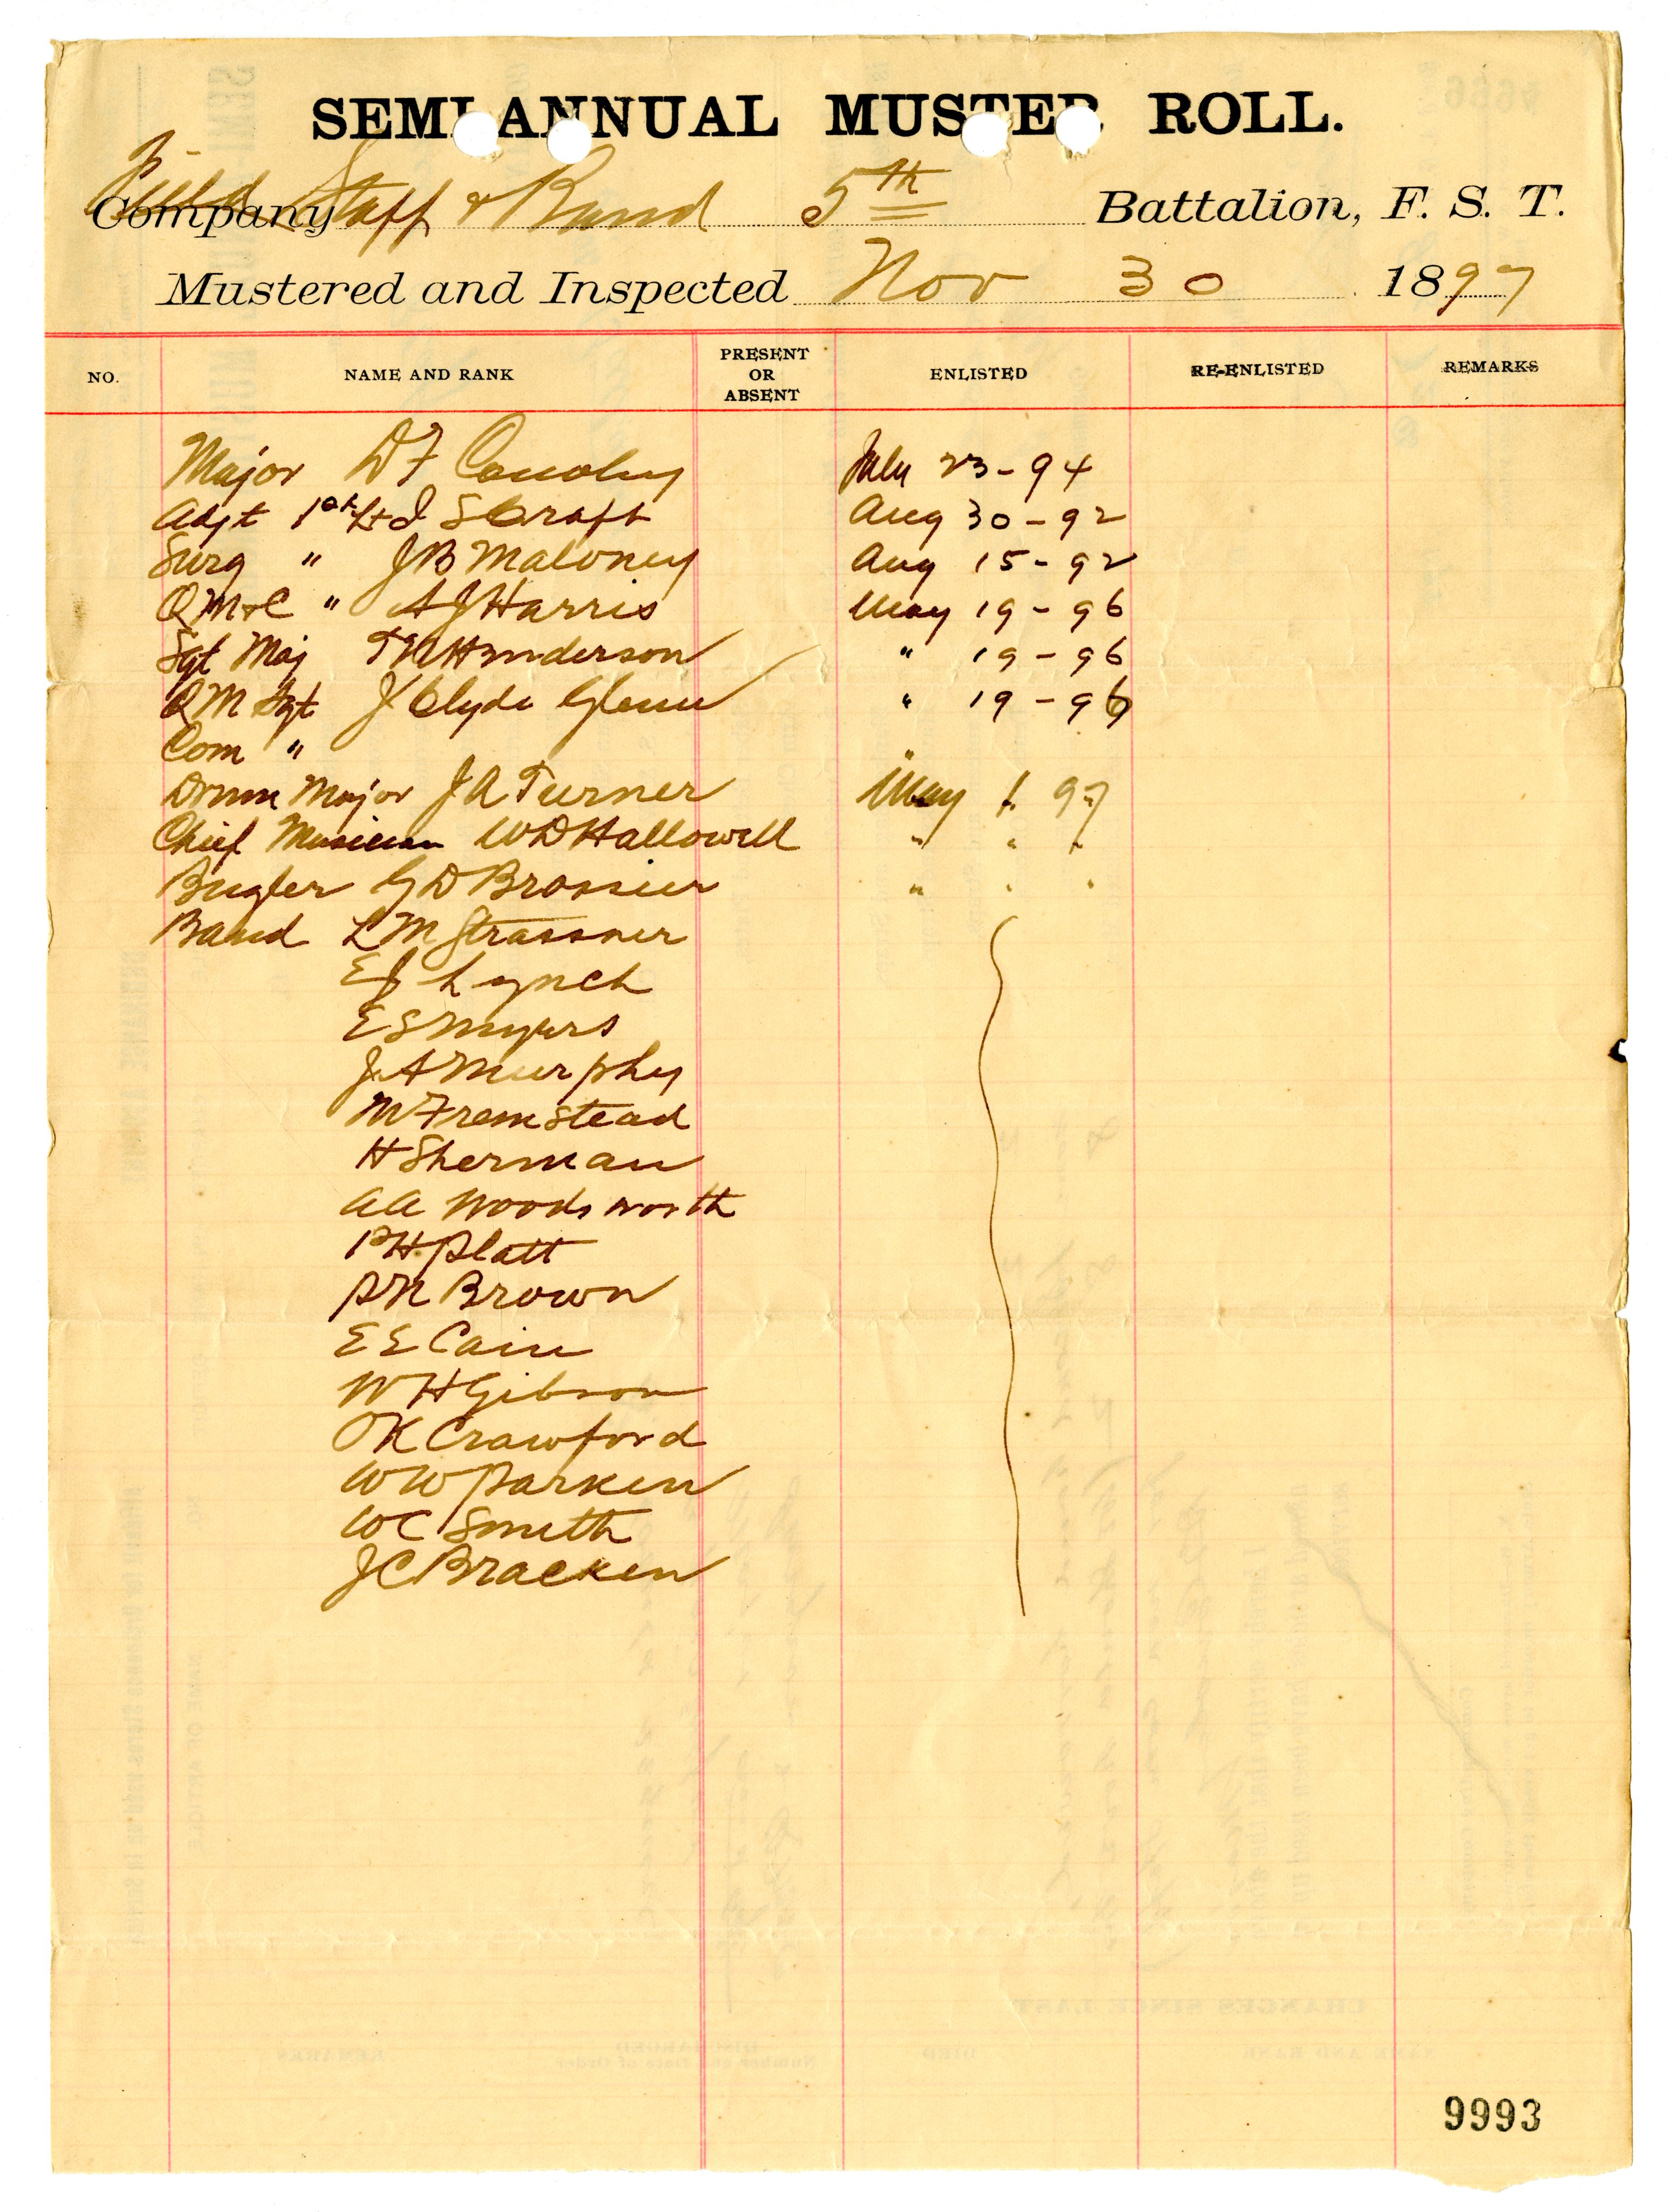 SEMI-ANNUAL MUSTER ROLL.
Company Field Staff & Band 5th Battalion, F. S. T.
Mustered and Inspected Nov 30 1897
NO. NAME AND RANK PRESENT OR ABSENT ENLISTED RE-ENLISTED REMARKS
Major D F Conoley July 23-94
Adjt 1st Lt J S Craft Aug 30-92
Surg " J B Maloney Aug 15-92
Q M & C " A J Harris May 19-96
Sgt Maj Henderson " 19-96
Q M Sgt J Clyde Glenn " 19-96
Com "
Drum Major J A Turner May 1. 97
Chief Musician W D Hallowell " " "
Bugler G D Brossier " " "
Band L M Strassner
E J Lynch
E S Myers
J. A Murphy
M Fremstead
H Sherman
A A Woodsworth
P H. Platt
P N Brown
E E Cain
W H Gibson
O K Crawford
W W Parken
W C Smith
J C Bracken
9993